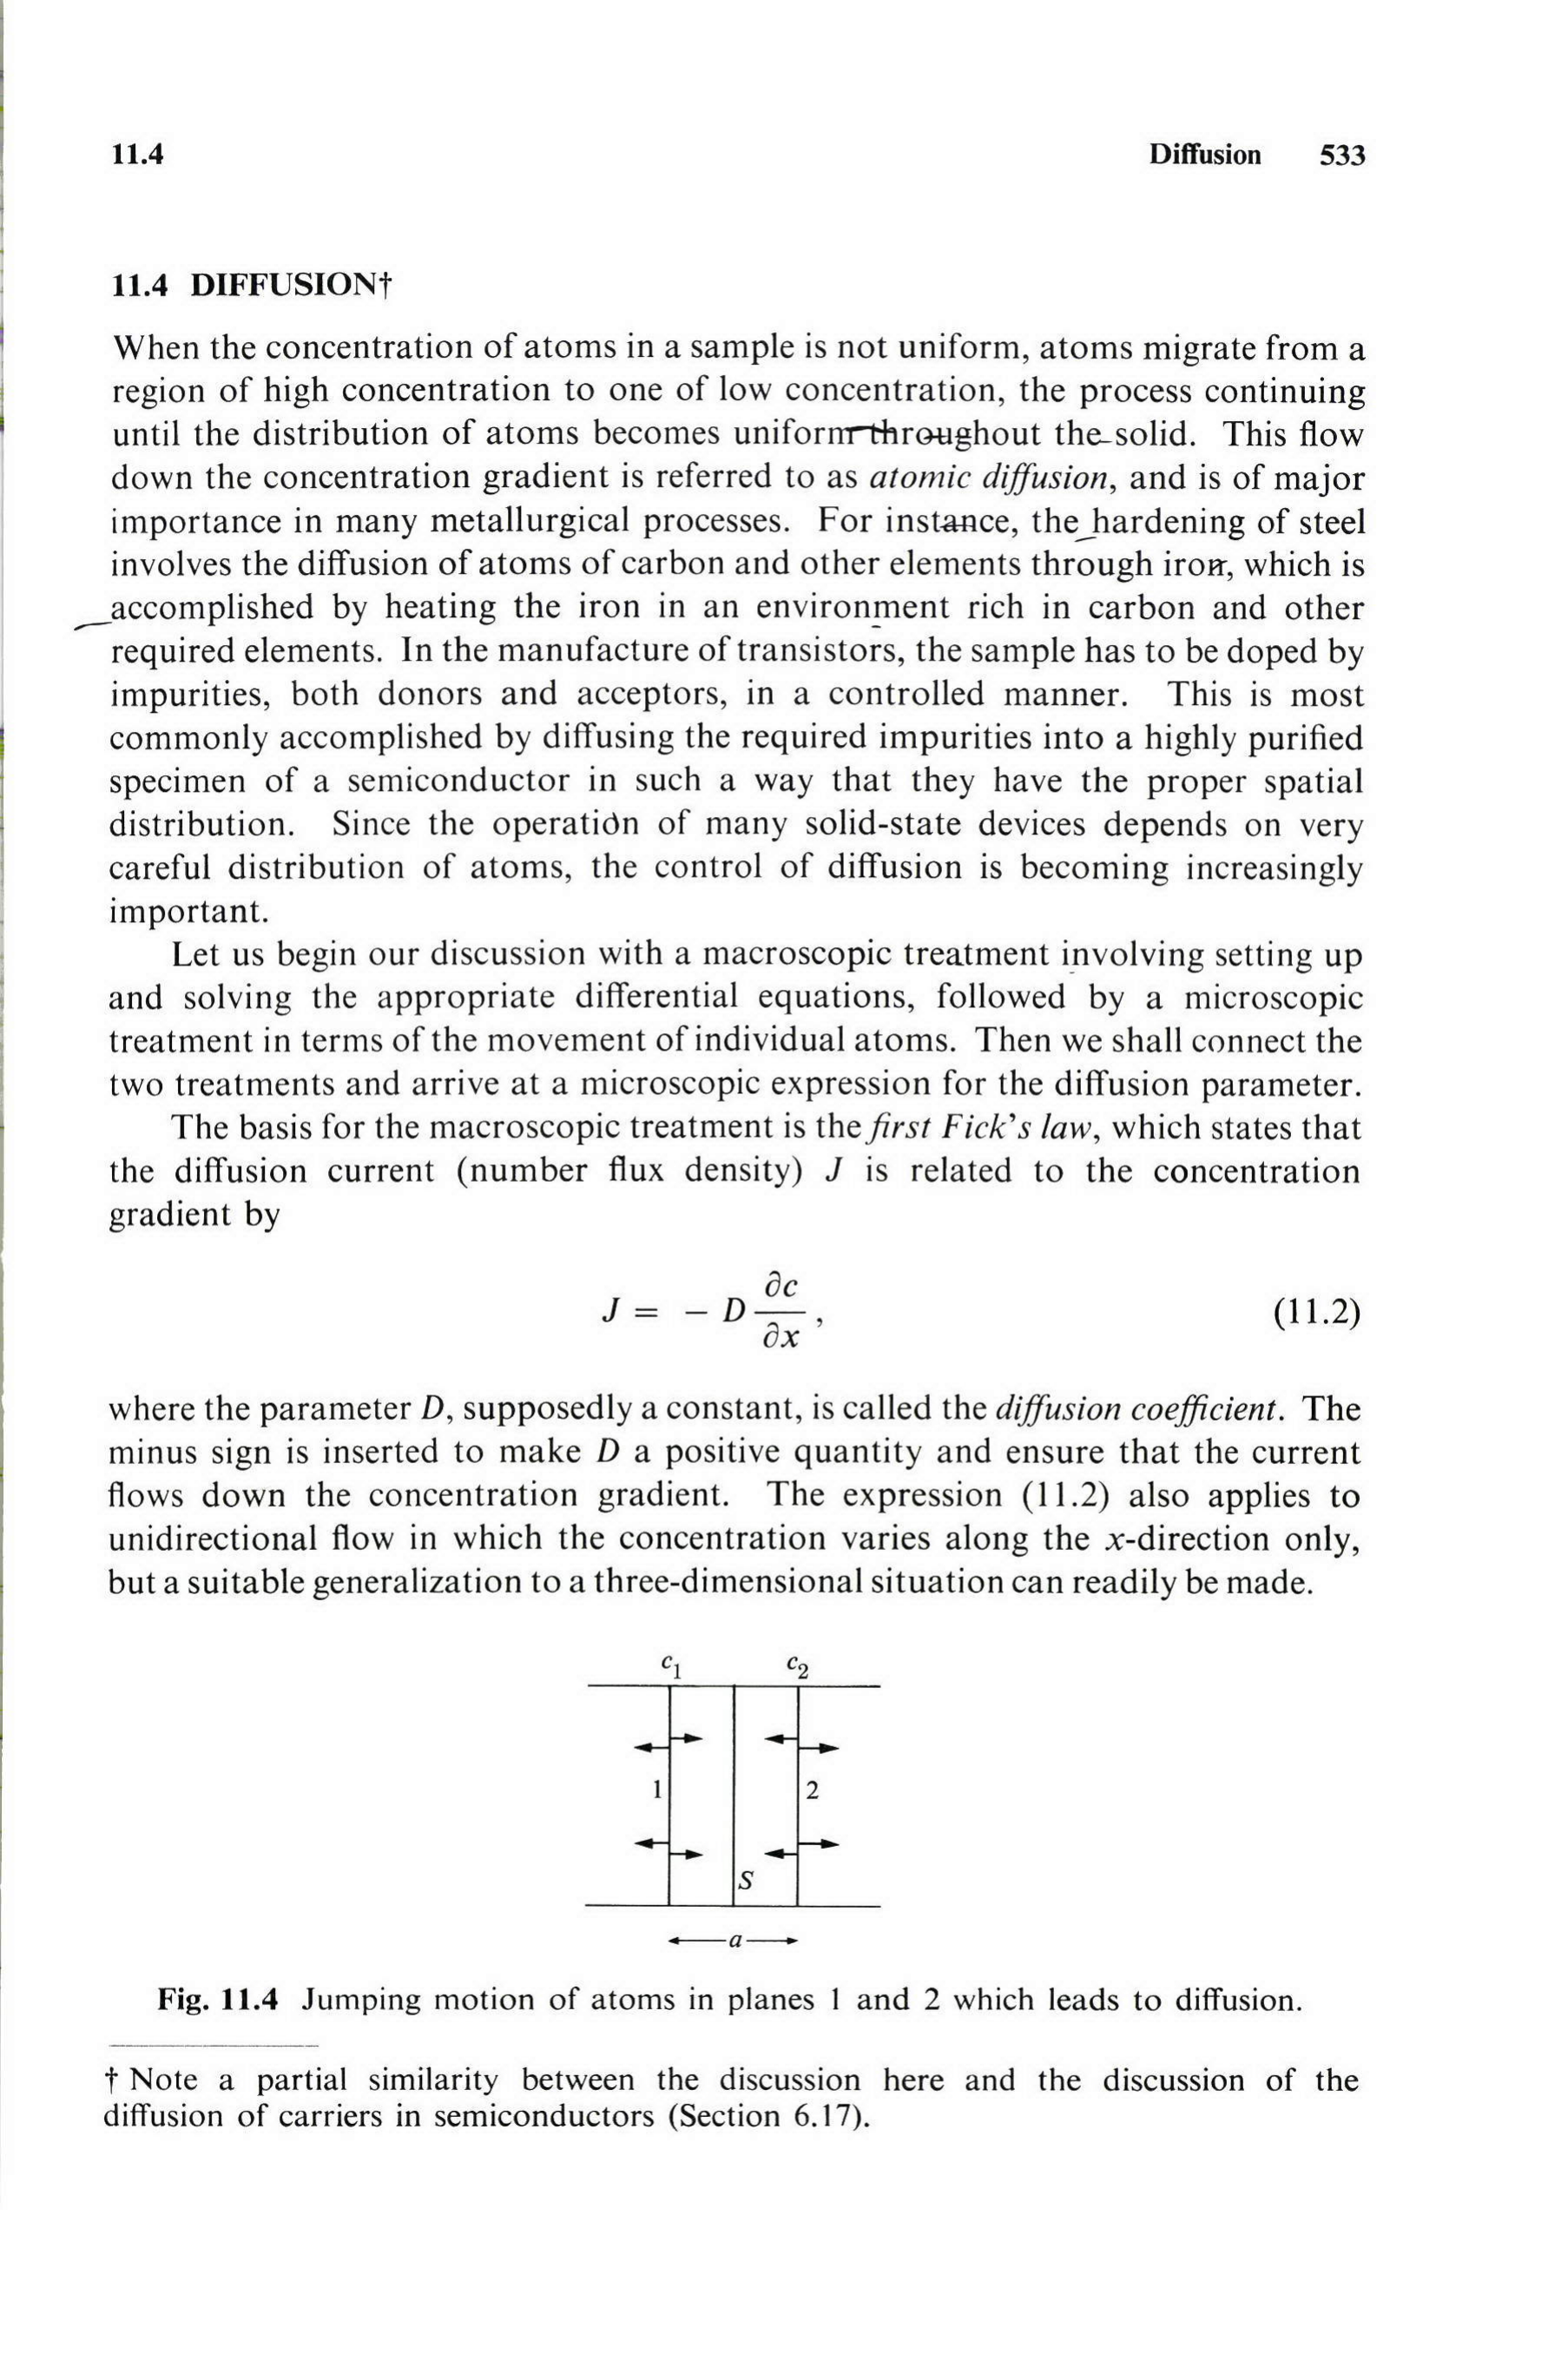 11.4 Diffusion 533
11.4 DIFFUSION†
When the concentration of atoms in a sample is not uniform, atoms migrate from a
region of high concentration to one of low concentration, the process continuing
until the distribution of atoms becomes uniform throughout the solid. This flow
down the concentration gradient is referred to as atomic diffusion, and is of major
importance in many metallurgical processes. For instance, the hardening of steel
involves the diffusion of atoms of carbon and other elements through iron, which is
accomplished by heating the iron in an environment rich in carbon and other
required elements. In the manufacture of transistors, the sample has to be doped by
impurities, both donors and acceptors, in a controlled manner. This is most
commonly accomplished by diffusing the required impurities into a highly purified
specimen of a semiconductor in such a way that they have the proper spatial
distribution. Since the operation of many solid-state devices depends on very
careful distribution of atoms, the control of diffusion is becoming increasingly
important.
Let us begin our discussion with a macroscopic treatment involving setting up
and solving the appropriate differential equations, followed by a microscopic
treatment in terms of the movement of individual atoms. Then we shall connect the
two treatments and arrive at a microscopic expression for the diffusion parameter.
The basis for the macroscopic treatment is the first Fick's law, which states that
the diffusion current (number flux density) J is related to the concentration
gradient by
J = − D ∂c/∂x , (11.2)
where the parameter D, supposedly a constant, is called the diffusion coefficient. The
minus sign is inserted to make D a positive quantity and ensure that the current
flows down the concentration gradient. The expression (11.2) also applies to
unidirectional flow in which the concentration varies along the x-direction only,
but a suitable generalization to a three-dimensional situation can readily be made.
c₁ c₂
1 2
S
a
Fig. 11.4 Jumping motion of atoms in planes 1 and 2 which leads to diffusion.
† Note a partial similarity between the discussion here and the discussion of the
diffusion of carriers in semiconductors (Section 6.17).